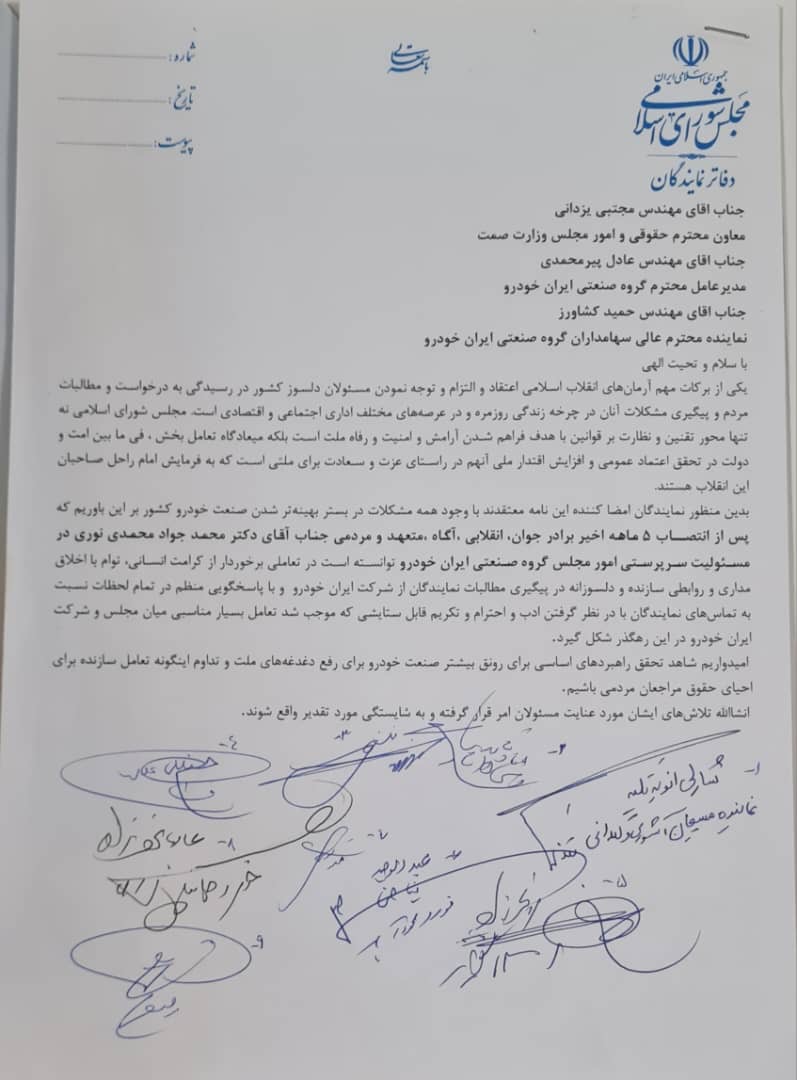 باسمه تعالی
جمهوری اسلامی ایران
مجلس شورای اسلامی
دفاتر نمایندگان
شماره:
تاریخ:
پیوست:
جناب اقای مهندس مجتبی یزدانی
معاون محترم حقوقی و امور مجلس وزارت صمت
جناب اقای مهندس عادل پیرمحمدی
مدیرعامل محترم گروه صنعتی ایران خودرو
جناب اقای مهندس حمید کشاورز
نماینده محترم عالی سهامداران گروه صنعتی ایران خودرو
با سلام و تحیت الهی
یکی از برکات مهم آرمان‌های انقلاب اسلامی اعتقاد و التزام و توجه نمودن مسئولان دلسوز کشور در رسیدگی به درخواست و مطالبات
مردم و پیگیری مشکلات آنان در چرخه زندگی روزمره و در عرصه‌های مختلف اداری اجتماعی و اقتصادی است. مجلس شورای اسلامی نه
تنها محور تقنین و نظارت بر قوانین با هدف فراهم شدن آرامش و امنیت و رفاه ملت است بلکه میعادگاه تعامل بخش ، فی ما بین امت و
دولت در تحقق اعتماد عمومی و افزایش اقتدار ملی آنهم در راستای عزت و سعادت برای ملتی است که به فرمایش امام راحل صاحبان
این انقلاب هستند.
بدین منظور نمایندگان امضا کننده این نامه معتقدند با وجود همه مشکلات در بستر بهینه‌تر شدن صنعت خودرو کشور بر این باوریم که
پس از انتصاب ۵ ماهه اخیر برادر جوان، انقلابی ،آگاه ،متعهد و مردمی جناب آقای دکتر محمد جواد محمدی نوری در
مسئولیت سرپرستی امور مجلس گروه صنعتی ایران خودرو توانسته است در تعاملی برخوردار از کرامت انسانی، توام با اخلاق
مداری و روابطی سازنده و دلسوزانه در پیگیری مطالبات نمایندگان از شرکت ایران خودرو و با پاسخگویی منظم در تمام لحظات نسبت
به تماس‌های نمایندگان با در نظر گرفتن ادب و احترام و تکریم قابل ستایشی که موجب شد تعامل بسیار مناسبی میان مجلس و شرکت
ایران خودرو در این رهگذر شکل گیرد.
امیدواریم شاهد تحقق راهبردهای اساسی برای رونق بیشتر صنعت خودرو برای رفع دغدغه‌های ملت و تداوم اینگونه تعامل سازنده برای
احیای حقوق مراجعان مردمی باشیم.
انشاالله تلاش‌های ایشان مورد عنایت مسئولان امر قرار گرفته و به شایستگی مورد تقدیر واقع شوند.
۱-
شارلی انویه تکیه
نماینده مسیحیان آشوری و کلدانی
۲-
۳-
۴-
۵-
۶-
۷-
۸-
۹-